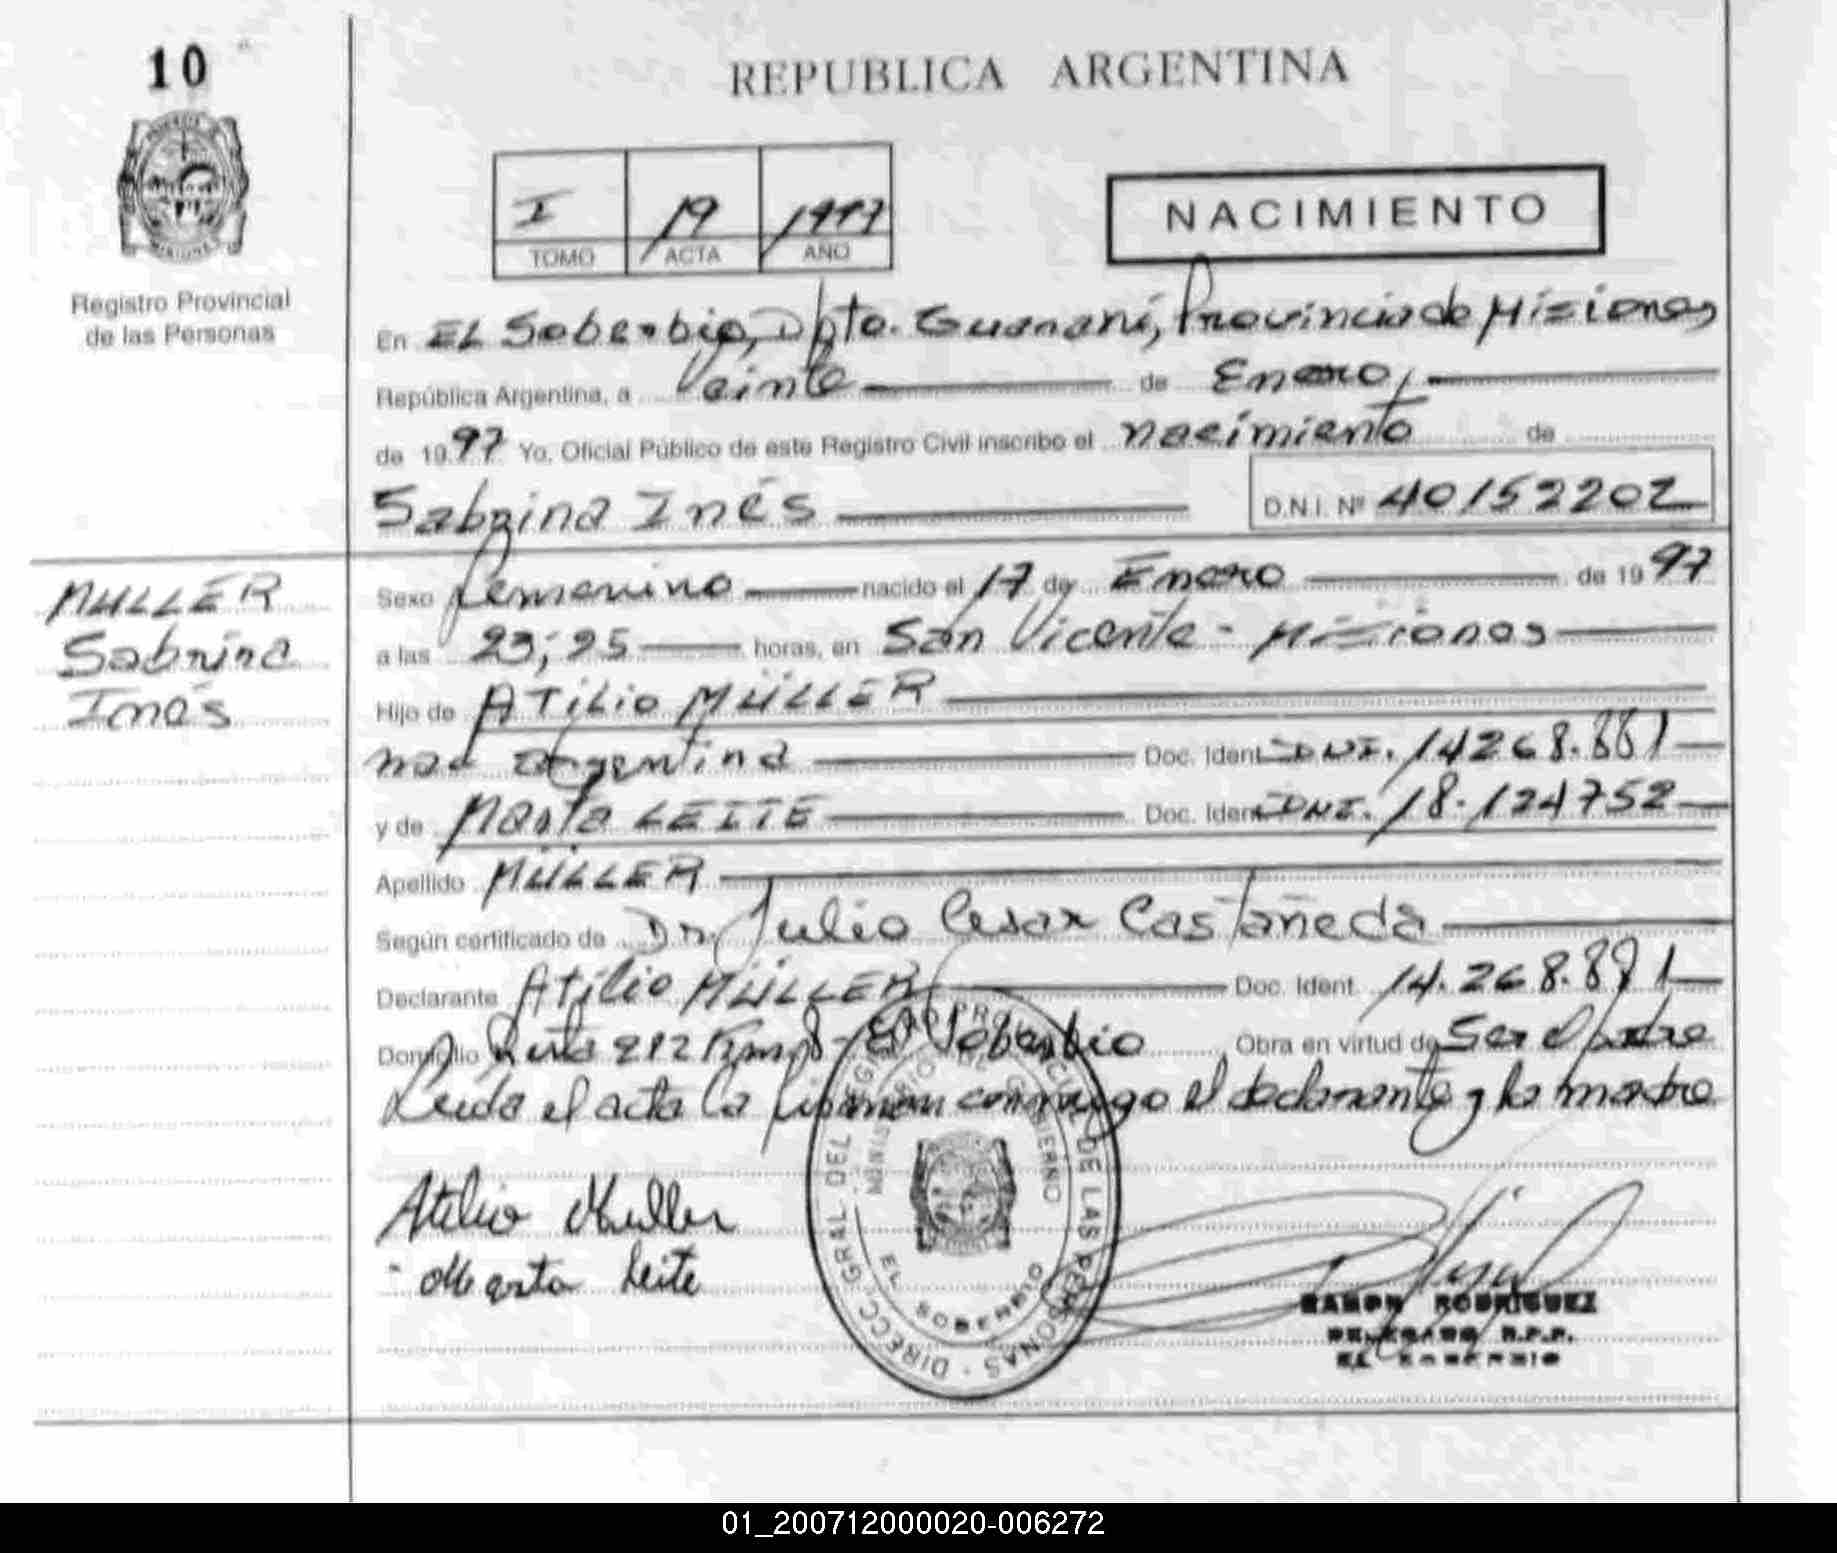 10
REPUBLICA ARGENTINA
I 19 1997
TOMO ACTA AÑO
NACIMIENTO
Registro Provincial
de las Personas
En EL Soberbio, Dpto. Guaraní, Provincia de Misiones
República Argentina, a Veinte de Enero,
de 1997 Yo, Oficial Público de este Registro Civil inscribo el nacimiento de
Sabrina Inés D.N.I. Nº 40152202
MULLER
Sabrina
Inés
Sexo femenino nacido el 17 de Enero de 1997
a las 23,25 horas, en San Vicente - Misiones
Hijo de ATiLio MÜLLER
nad argentina Doc. Ident DNI. 14268.881
y de Marta LEITE Doc. Ident DNI. 18.124752
Apellido MÜLLER
Según certificado de Dr. Julio Cesar Castañeda
Declarante Atilio MÜLLER Doc. Ident. 14.268.881
Domicilio Ruta 212 El Soberbio Obra en virtud de Ser el padre
Leída el acta la firman conmigo el declarante y la madre
Atilio Muller
- Marta Leite
DIRECC. GRAL. DEL REGISTRO PROVINCIAL DE LAS PERSONAS
MINISTERIO DE GOBIERNO
EL SOBERBIO
RAMON RODRIGUEZ
DELEGADO R.P.P.
EL SOBERBIO
01_200712000020-006272